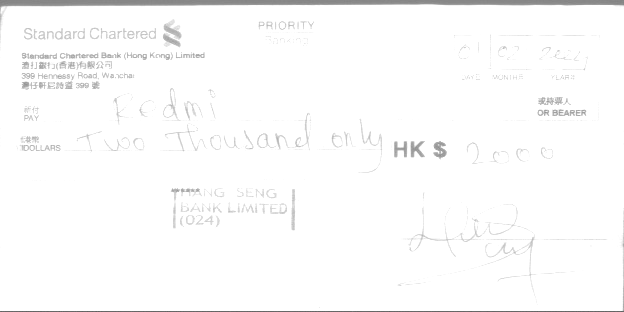 Standard Chartered
PRIORITY
Banking
Standard Chartered Bank (Hong Kong) Limited
渣打銀行(香港)有限公司
399 Hennessy Road, Wanchai
灣仔軒尼詩道 399 號
01 02
DATE MONTHS YEARS
祈付
PAY
Redmi
或持票人
OR BEARER
港幣
DOLLARS
Two Thousand only
HK $ 2000
HANG SENG
BANK LIMITED
(024)